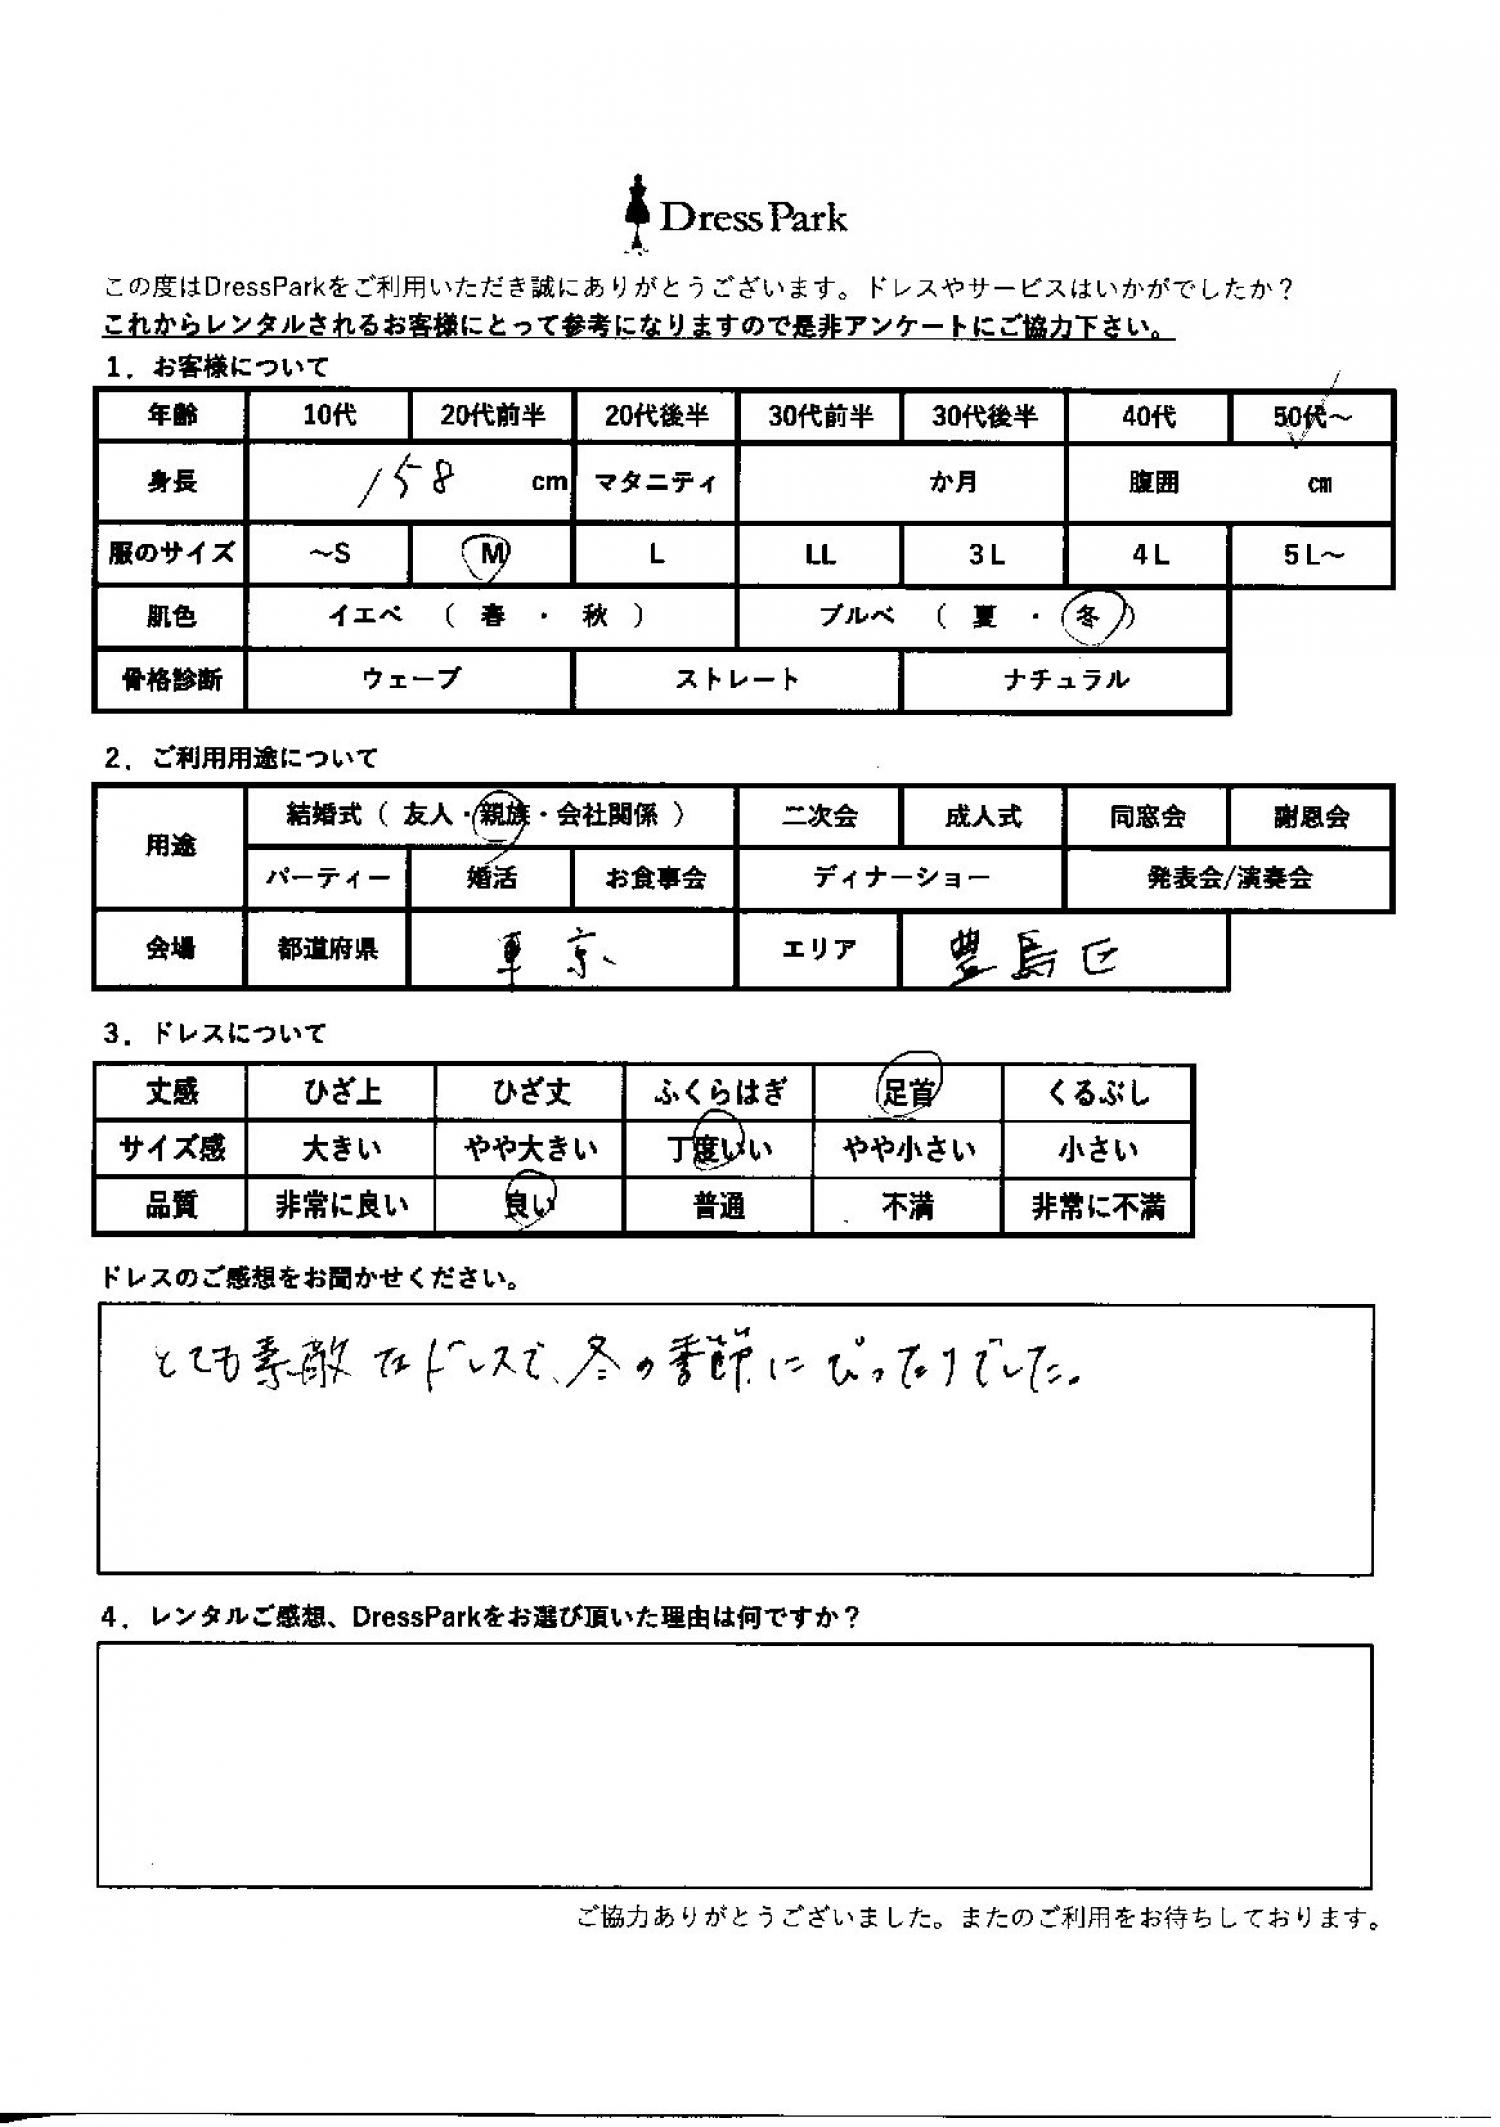 Dress Park
この度はDressParkをご利用いただき誠にありがとうございます。ドレスやサービスはいかがでしたか？
これからレンタルされるお客様にとって参考になりますので是非アンケートにご協力下さい。
1．お客様について
年齢 10代 20代前半 20代後半 30代前半 30代後半 40代 50代～
身長 158 cm マタニティ か月 腹囲 cm
服のサイズ ～S M L LL 3L 4L 5L～
肌色 イエベ （ 春 ・ 秋 ） ブルベ （ 夏 ・ 冬 ）
骨格診断 ウェーブ ストレート ナチュラル
2．ご利用用途について
用途 結婚式（ 友人・親族・会社関係 ） 二次会 成人式 同窓会 謝恩会
パーティー 婚活 お食事会 ディナーショー 発表会/演奏会
会場 都道府県 東京 エリア 豊島区
3．ドレスについて
丈感 ひざ上 ひざ丈 ふくらはぎ 足首 くるぶし
サイズ感 大きい やや大きい 丁度いい やや小さい 小さい
品質 非常に良い 良い 普通 不満 非常に不満
ドレスのご感想をお聞かせください。
とても素敵なドレスで、冬の季節にぴったりでした。
4．レンタルご感想、DressParkをお選び頂いた理由は何ですか？
ご協力ありがとうございました。またのご利用をお待ちしております。